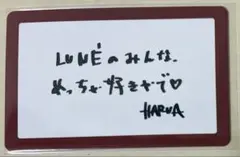 LUNÉのみんな、
めっちゃ好きやで♡
HARUA